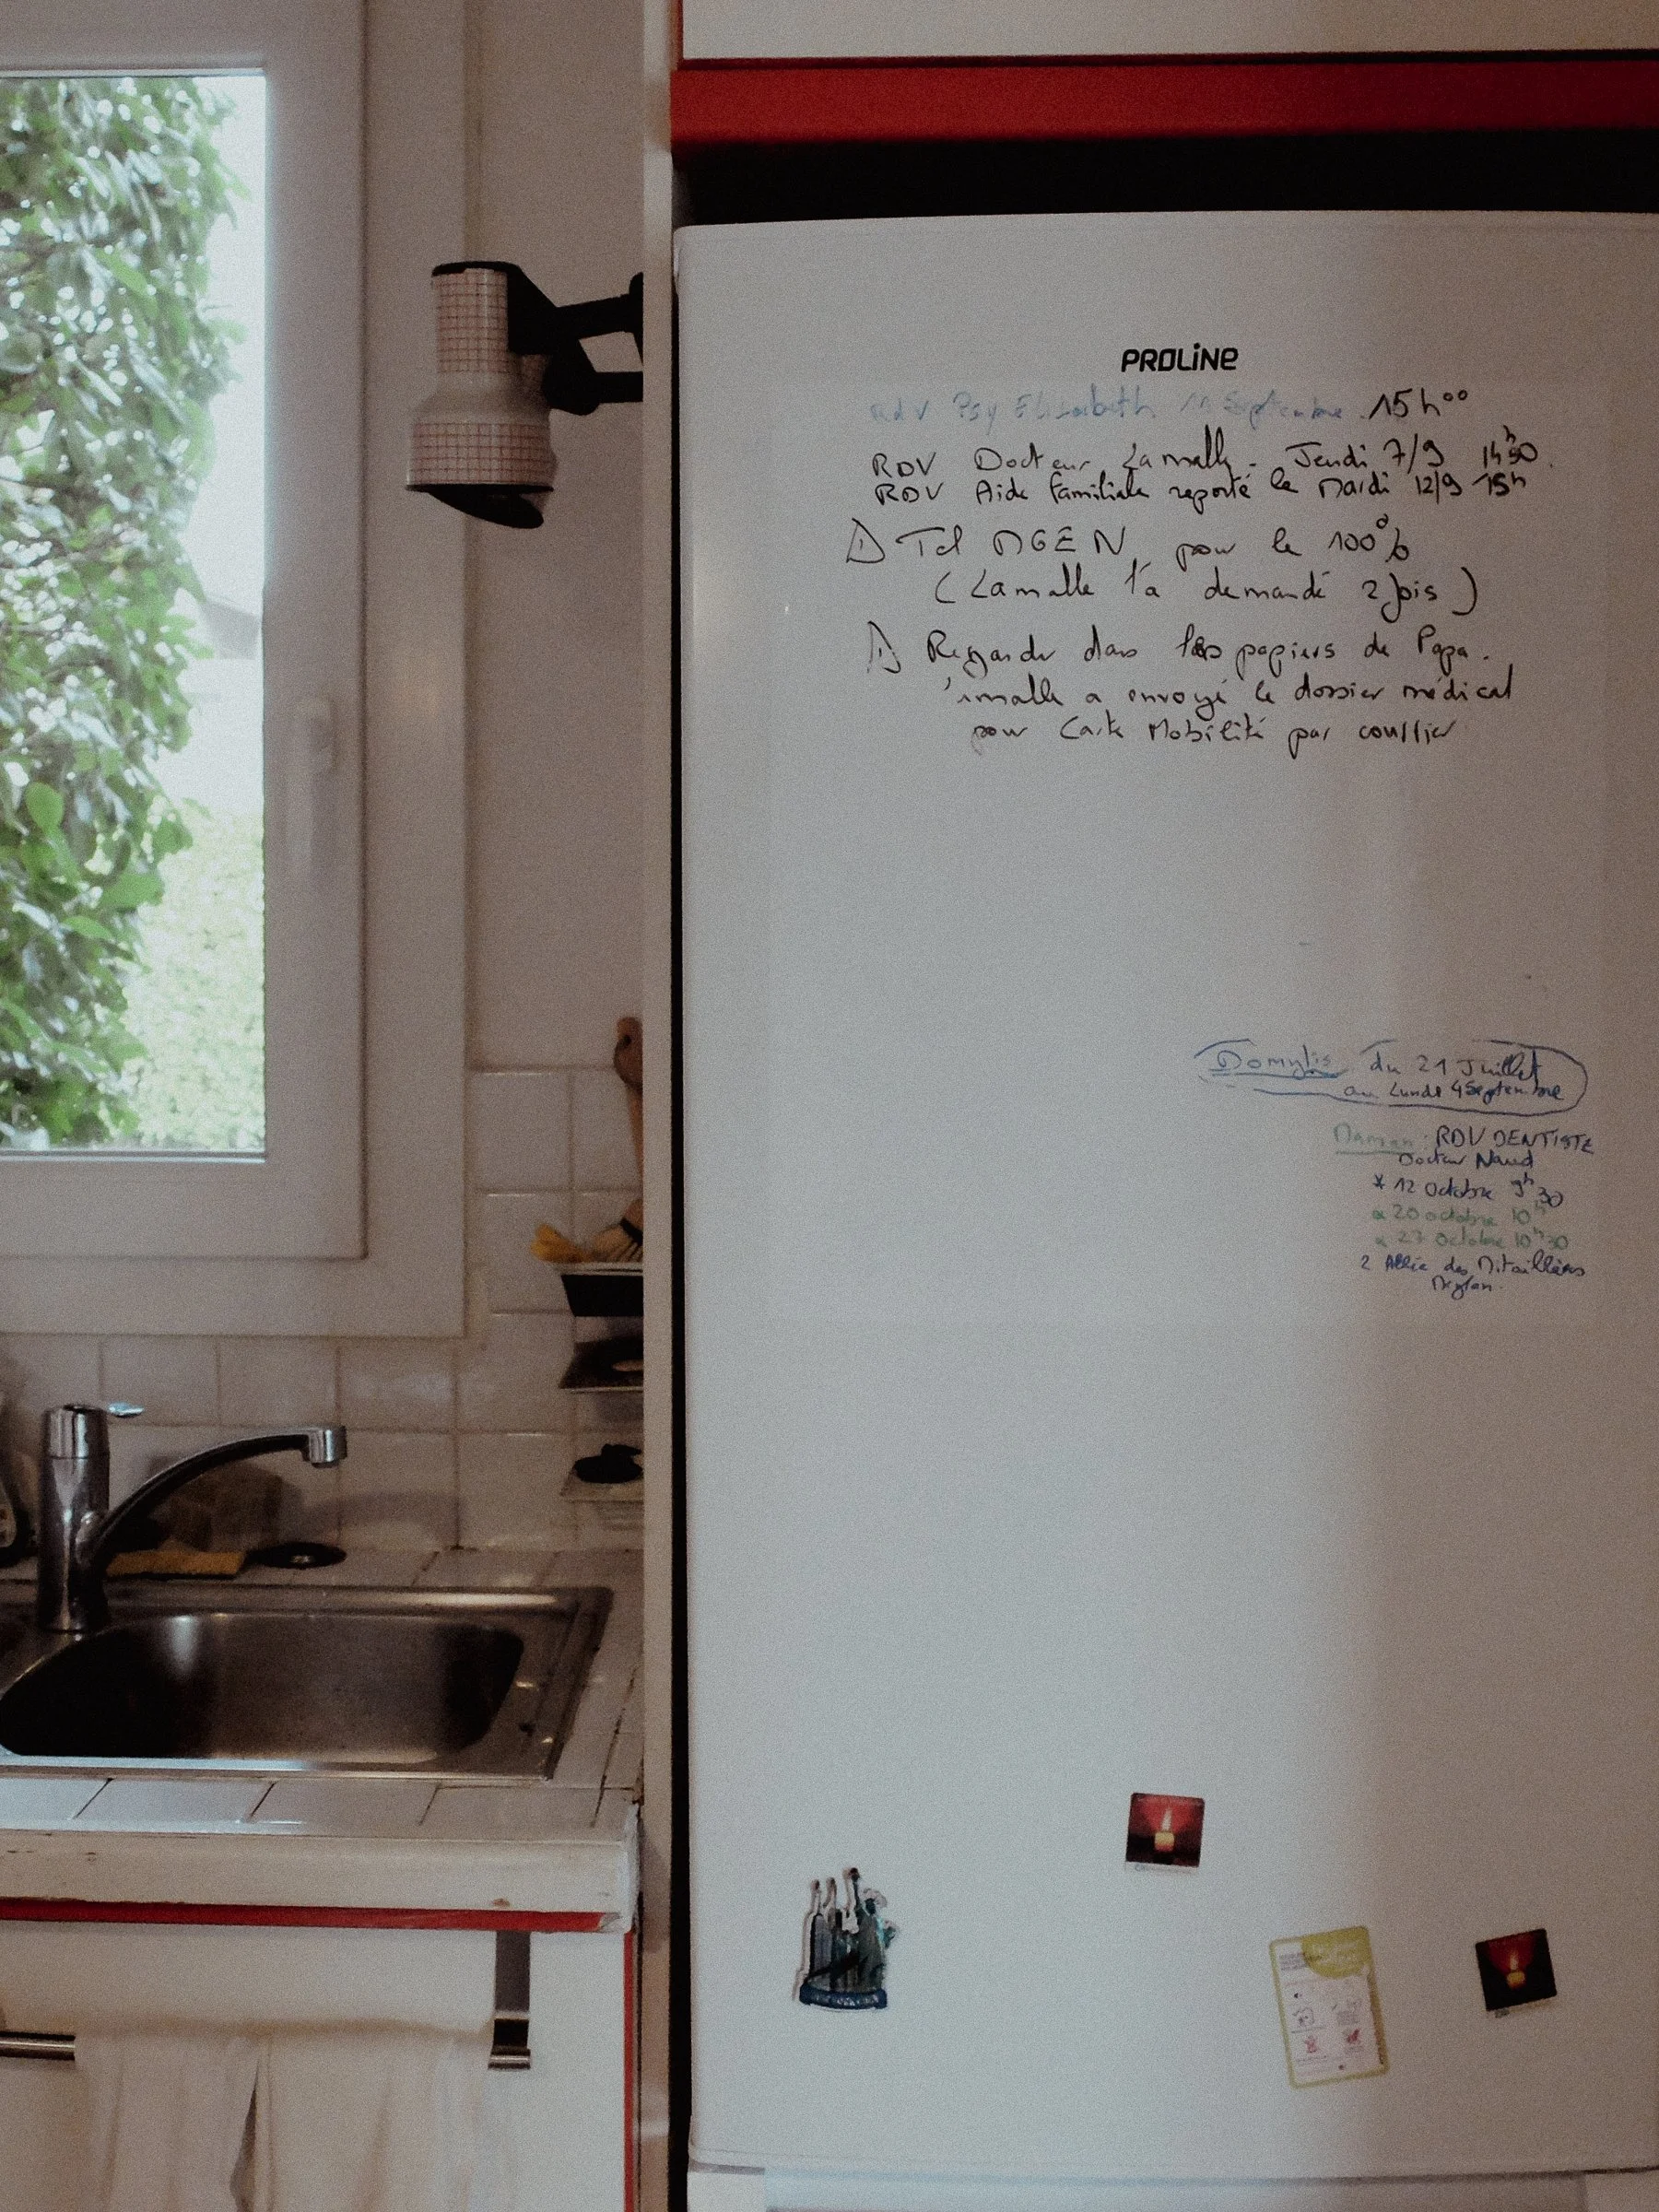 PROLINE
rdv Psy Elisabeth 11 Septembre. 15h00
RDV Docteur Lamalle. Jeudi 7/9
RDV Aide Familiale reporté le Mardi 12/9 15h
Tel MGEN pour le 100%
(Lamalle l'a demandé 2 fois)
Regarder dans les papiers de Papa.
a envoyé le dossier médical
pour Carte Mobilité par courrier
Domylis du 21 Juillet
au Lundi 4 Septembre
Maman: RDV DENTISTE
Docteur Naud
* 12 Octobre 9h30
* 20 octobre 10h
* 27 Octobre 10h30
2 Allée des Mitaillères
Meylan.